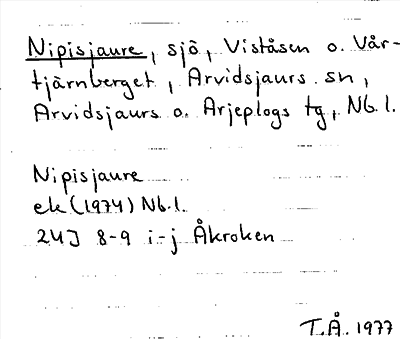 Nipisjaure, sjö, Viståsen o. Vår-
tjärnberget, Arvidsjaurs sn,
Arvidsjaurs o. Arjeplogs tg, Nb. l.
Nipisjaure
ek (1974) Nb. l.
24J 8-9 i-j Åkroken
T.Å. 1977